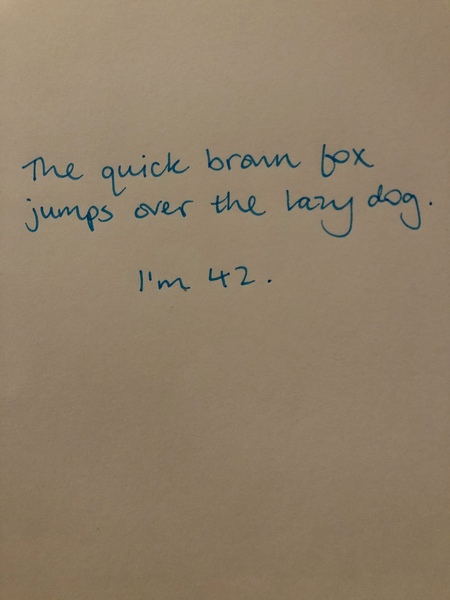 The quick brown fox
jumps over the lazy dog.
I'm 42.